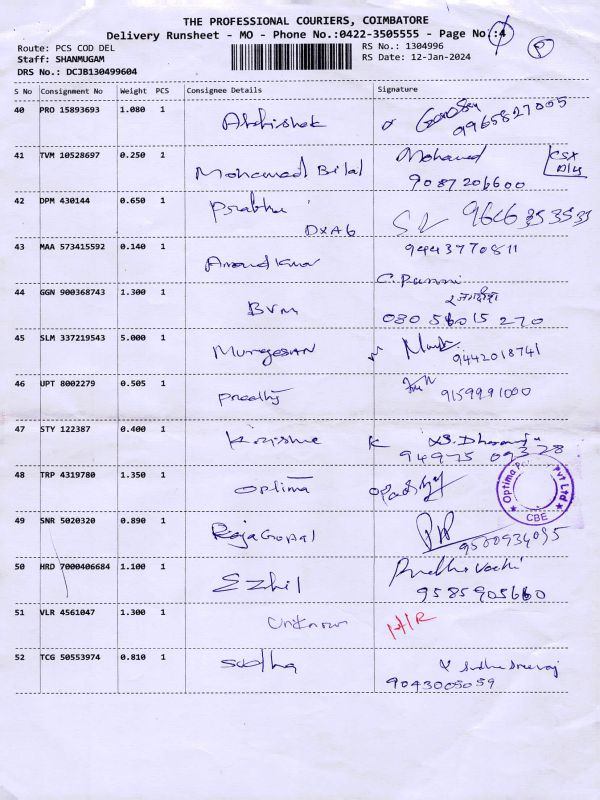 THE PROFESSIONAL COURIERS, COIMBATORE
Delivery Runsheet - MO - Phone No.:0422-3505555 - Page No.:4
P
Route: PCS COD DEL
Staff: SHANMUGAM
DRS No.: DCJB130499604
RS No.: 1304996
RS Date: 12-Jan-2024
S No Consignment No Weight PCS Consignee Details Signature
40 PRO 15893693 1.080 1 Abhishek
9965827005
41 TVM 10528697 0.250 1 Mohamad Bilal Mohamed
9087206600
42 DPM 430144 0.650 1 Prabhu
DXAG
9646353535
43 MAA 573415592 0.140 1 Anand Kumar 9443770811
44 GGN 900368743 1.300 1 BVM
080 56015 270
45 SLM 337219543 5.000 1 Murgesan
9442018741
46 UPT 8002279 0.505 1 Preethj
9159991000
47 STY 122387 0.400 1 Krishne K
94975 09328
48 TRP 4319780 1.350 1 Optima
Optima Pvt Ltd
CBE
49 SNR 5020320 0.890 1 RajaGopal
50 HRD 7000406684 1.100 1 Ezhil
9585905660
51 VLR 4561047 1.300 1 Unknown
52 TCG 50553974 0.810 1 Sudha
9043005059